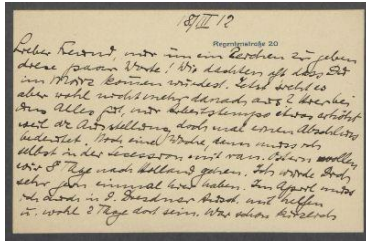 18/III 12
Regentenstraße 20
Lieber Freund, nur um ein Zeichen zu geben
diese paar Worte! Wir dachten oft dass Du
im März kommen würdest. Jetzt sieht es
aber wohl nicht mehr danach aus?
uns Alles gut, nur Arbeitstempo etwas erhöht
weil die Ausstellung doch mal einen Abschluss
bedeutet. Noch eine Woche, dann muss ich
selbst in der Secession mit ran. Ostern wollen
wir 8 Tage nach Holland gehen. Ich würde Dich
sehr gern einmal hier haben. Im April muss
ich auch in d. Dresdner mit helfen
u. wohl 2 Tage dort sein. War schon